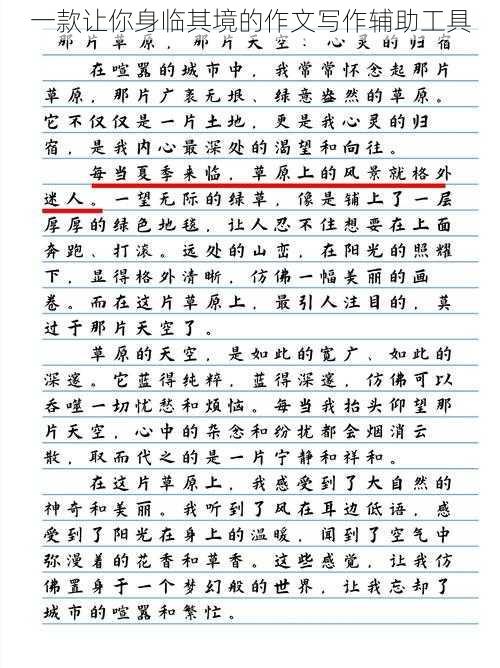 一款让你身临其境的作文写作辅助工具
那片草原，那片天空：心灵的归宿
在喧嚣的城市中，我常常怀念起那片
草原，那片广袤无垠、绿意盎然的草原。
它不仅仅是一片土地，更是我心灵的归
宿，是我内心最深处的渴望和向往。
每当夏季来临，草原上的风景就格外
迷人。一望无际的绿草，像是铺上了一层
厚厚的绿色地毯，让人忍不住想要在上面
奔跑、打滚。远处的山峦，在阳光的照耀
下，显得格外清晰，仿佛一幅美丽的画
卷。而在这片草原上，最引人注目的，莫
过于那片天空了。
草原的天空，是如此的宽广、如此的
深邃。它蓝得纯粹，蓝得深邃，仿佛可以
吞噬一切忧愁和烦恼。每当我抬头仰望那
片天空，心中的杂念和纷扰都会烟消云
散，取而代之的是一片宁静和祥和。
在这片草原上，我感受到了大自然的
神奇和美丽。我听到了风在耳边低语，感
受到了阳光在身上的温暖，闻到了空气中
弥漫着的花香和草香。这些感觉，让我仿
佛置身于一个梦幻般的世界，让我忘却了
城市的喧嚣和繁忙。